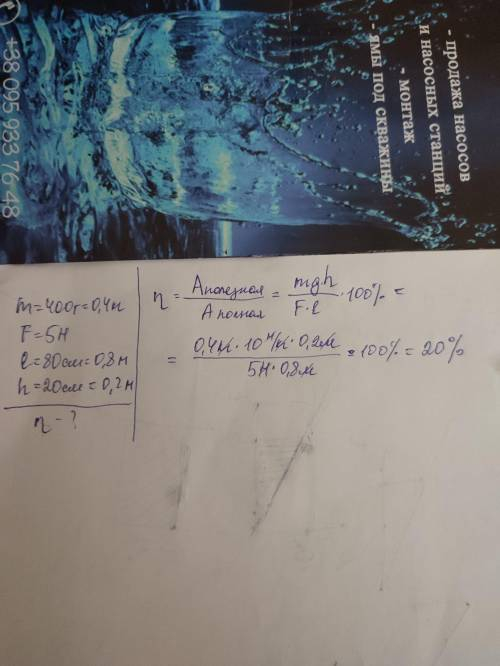 - продажа насосов
и насосных станций
- монтаж
- ямы под скважины
+38 095 933 76 48
m=400г=0,4кг
F=5Н
l=80см=0,8м
h=20см=0,2м
η-?
η = Aполезная / Aполная = mgh / F·l · 100% =
= 0,4кг·10 Н/кг·0,2м / 5Н·0,8м · 100% = 20%